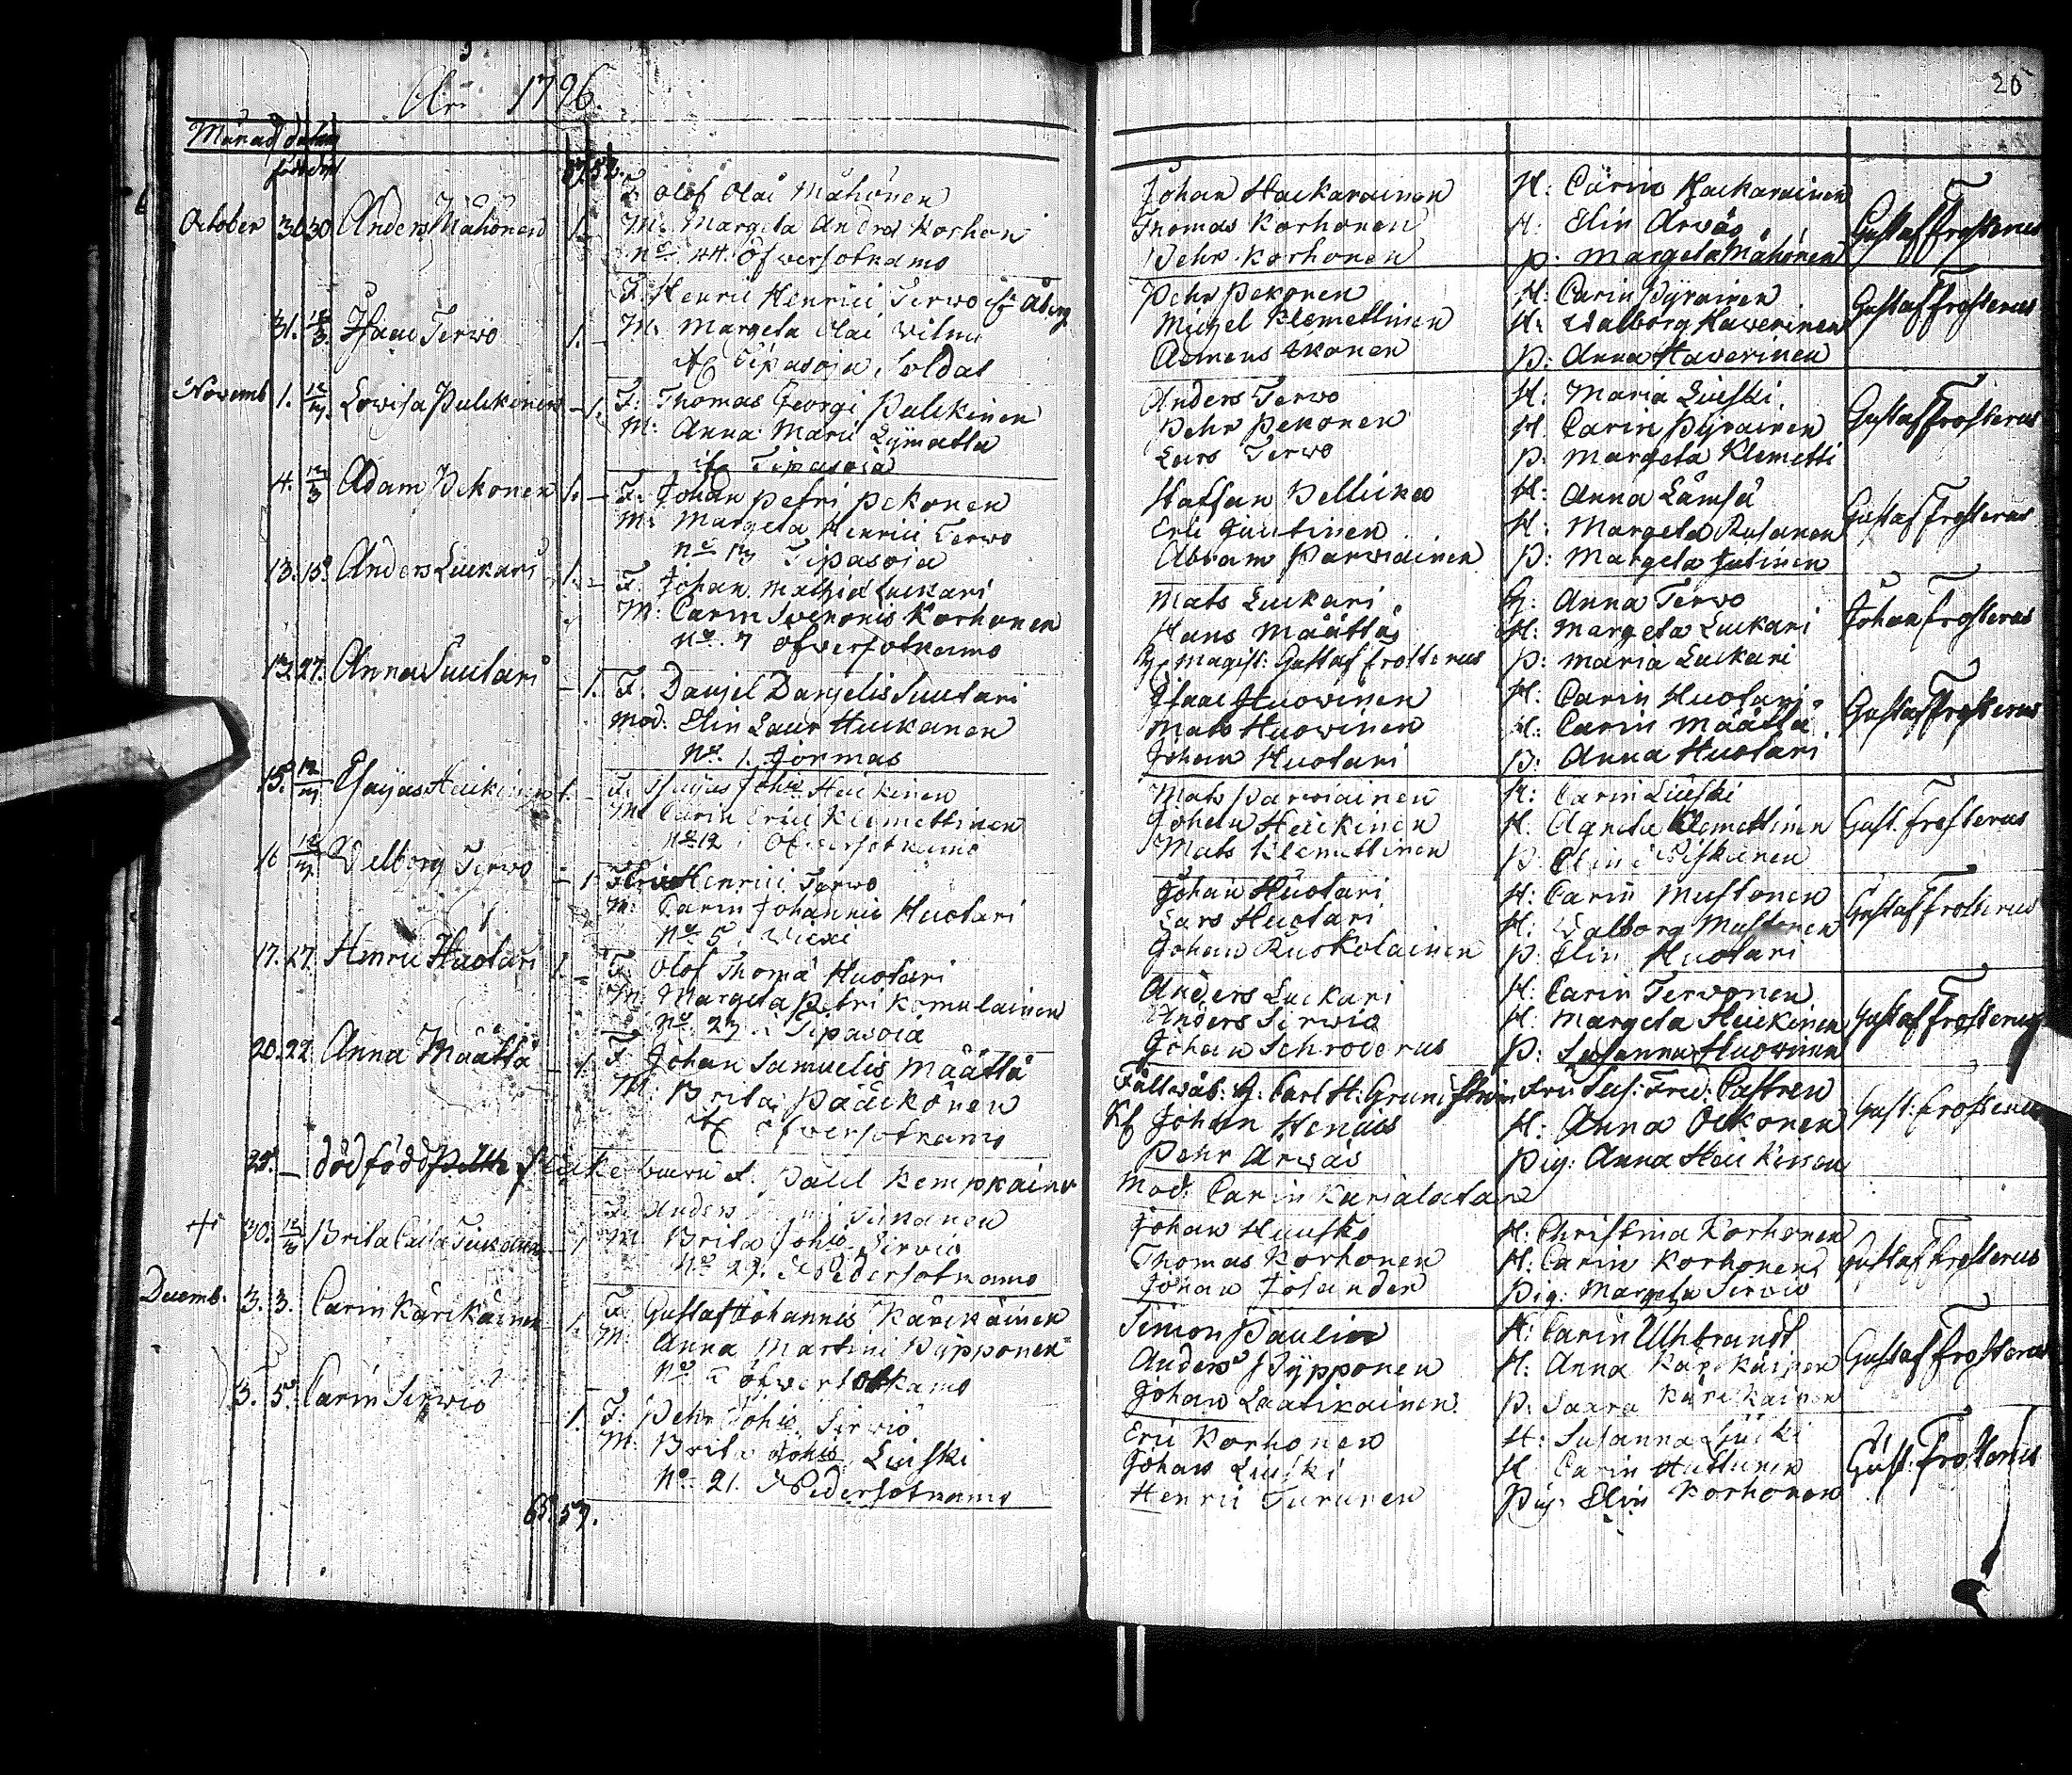 År 1796.
20
Månad datum
född döpt
57. 52.
F. Olof Olai Mähönen
October 30 30 Anders Mähönen 1.
M: Margeta Andræ Korhon
No 44. Öfversotkamo
Johan Hackarainen
Thomas Korhonen
Pehr Korhonen
H: Carin Hackarainen
H: Elin Arwas
p: Margeta Mähönen
Gustaf Frosterus
F. Henric Henrici Terwo
31. Isaac Terwo 1.
M: Margeta Olai
Tipasoja, Soldat
Pehr Pekonen
Michel Klemettinen
Clemens
H: Carin Pyrainen
H: Walborg Hawerinen
P: Anna Hawerinen
Gustaf Frosterus
Novemb 1. Lovisa Pulckinen 1.
F: Thomas Georgi Pulckinen
M: Anna Mari Lymatta
Tipasoia
Anders Terwo
Pehr Pekonen
Lars Terwo
H: Maria Luiski
H. Carin Pyrainen
p: Margeta Klemetti
Gustaf Frosterus
4. Adam Pekonen 1.
F. Johan Petri Pekonen
M: Margeta Henrici Terwo
No Tipasoia
Staffan
Eric Juutinen
Abram Parwiainen
H: Anna Lämsä
H: Margeta Rusanen
P: Margeta Jutinen
Gustaf Frosterus
13. 15. Anders Luckari 1.
F. Johan Mathiæ Luckari
M: Carin Svenonis Korhonen
No 7 Öfversotkamo
Mats Luckari
Hans Määttä
Magist: Gustaf Frosterus
H: Anna Terwo
H: Margeta Luckari
P: Maria Luckari
Johan Frosterus
13. 27. Anna Suutari 1.
F. Danjel Danjelis Suutari
Mod: Elin Laur Huckanen
No 1. Jormas
Isaac Huowinen
Mats Huowinen
Johan Huotari
H. Carin Huotari
H: Carin Määttä
P: Anna Huotari
Gustaf Frosterus
15. Esaijas Heickinen 1.
F. Esaijas Johis Heickinen
M: Carin Erici Klemettinen
No 12 Öfversotkamo
Mats Parwiainen
Johan Heickinen
Mats Klemettinen
H: Carin Luiski
H. Agneta Klemettinen
P: Elin
Gust. Frosterus
16 Walborg Terwo 1
F. Eric Henrici Terwo
M: Carin Johannis Huotari
No 5. Wiexi
Johan Huotari
Lars Huotari
Johan Ruokolainen
H: Carin Mustonen
H: Walborg Mustonen
P. Elin Huotari
Gustaf Frosterus
17. 27. Henric Huotari 1.
F: Olof Thomæ Huotari
M: Margeta Petri Komulainen
No 27. Tipasoia
Anders Luckari
Anders Sirwiö
Johan Schroderus
H: Carin Terwonen
H. Margeta Heickinen
p: Susanna Huowinen
Gustaf Frosterus
20. 22. Anna Määttä 1.
F. Johan Samuelis Määttä
M: Brita Pääckönen
Öfversotkamo
Fältwäb: H: Carl H: Gruni
Johan Henius
Pehr Arwas
Fru Sus: Fred: Castren
H: Anna Ockonen
Pig: Anna Heickinen
Gust: Frosterus
25. — död född flicke barn af. Påhl Kemppainen
Mod: Carin Karialatar
30. Brita Caisa 1
F. Anders
M: Brita Johis Sirwiö
No 29. Nedersotkamo
Johan Huusko
Thomas Korhonen
Johan Josander
H: Christina Korhonen
H: Carin Korhonen
Pig: Margeta Sirwiö
Gustaf Frosterus
Decemb: 3. 3. Carin Kärckäinen 1.
F. Gustaf Johannis Kärckäinen
M: Anna Martini Pypponen
No Öfversotkamo
Simon Paulin
Anders Pypponen
Johan Laatikainen
H: Carin Uhlbrandt
H: Anna Kärckäinen
P: Saara Kärckäinen
Gustaf Frosterus
3. 5. Carin Sirwiö 1.
F: Pehr Johis Sirwiö
M: Brita Johis Luiski
No 21. Nedersotkamo
Eric Korhonen
Johan Luiski
Henric Turunen
H: Susanna Luiski
H Carin Huttunen
Pig: Elin Korhonen
Gust: Frosterus
65. 57.